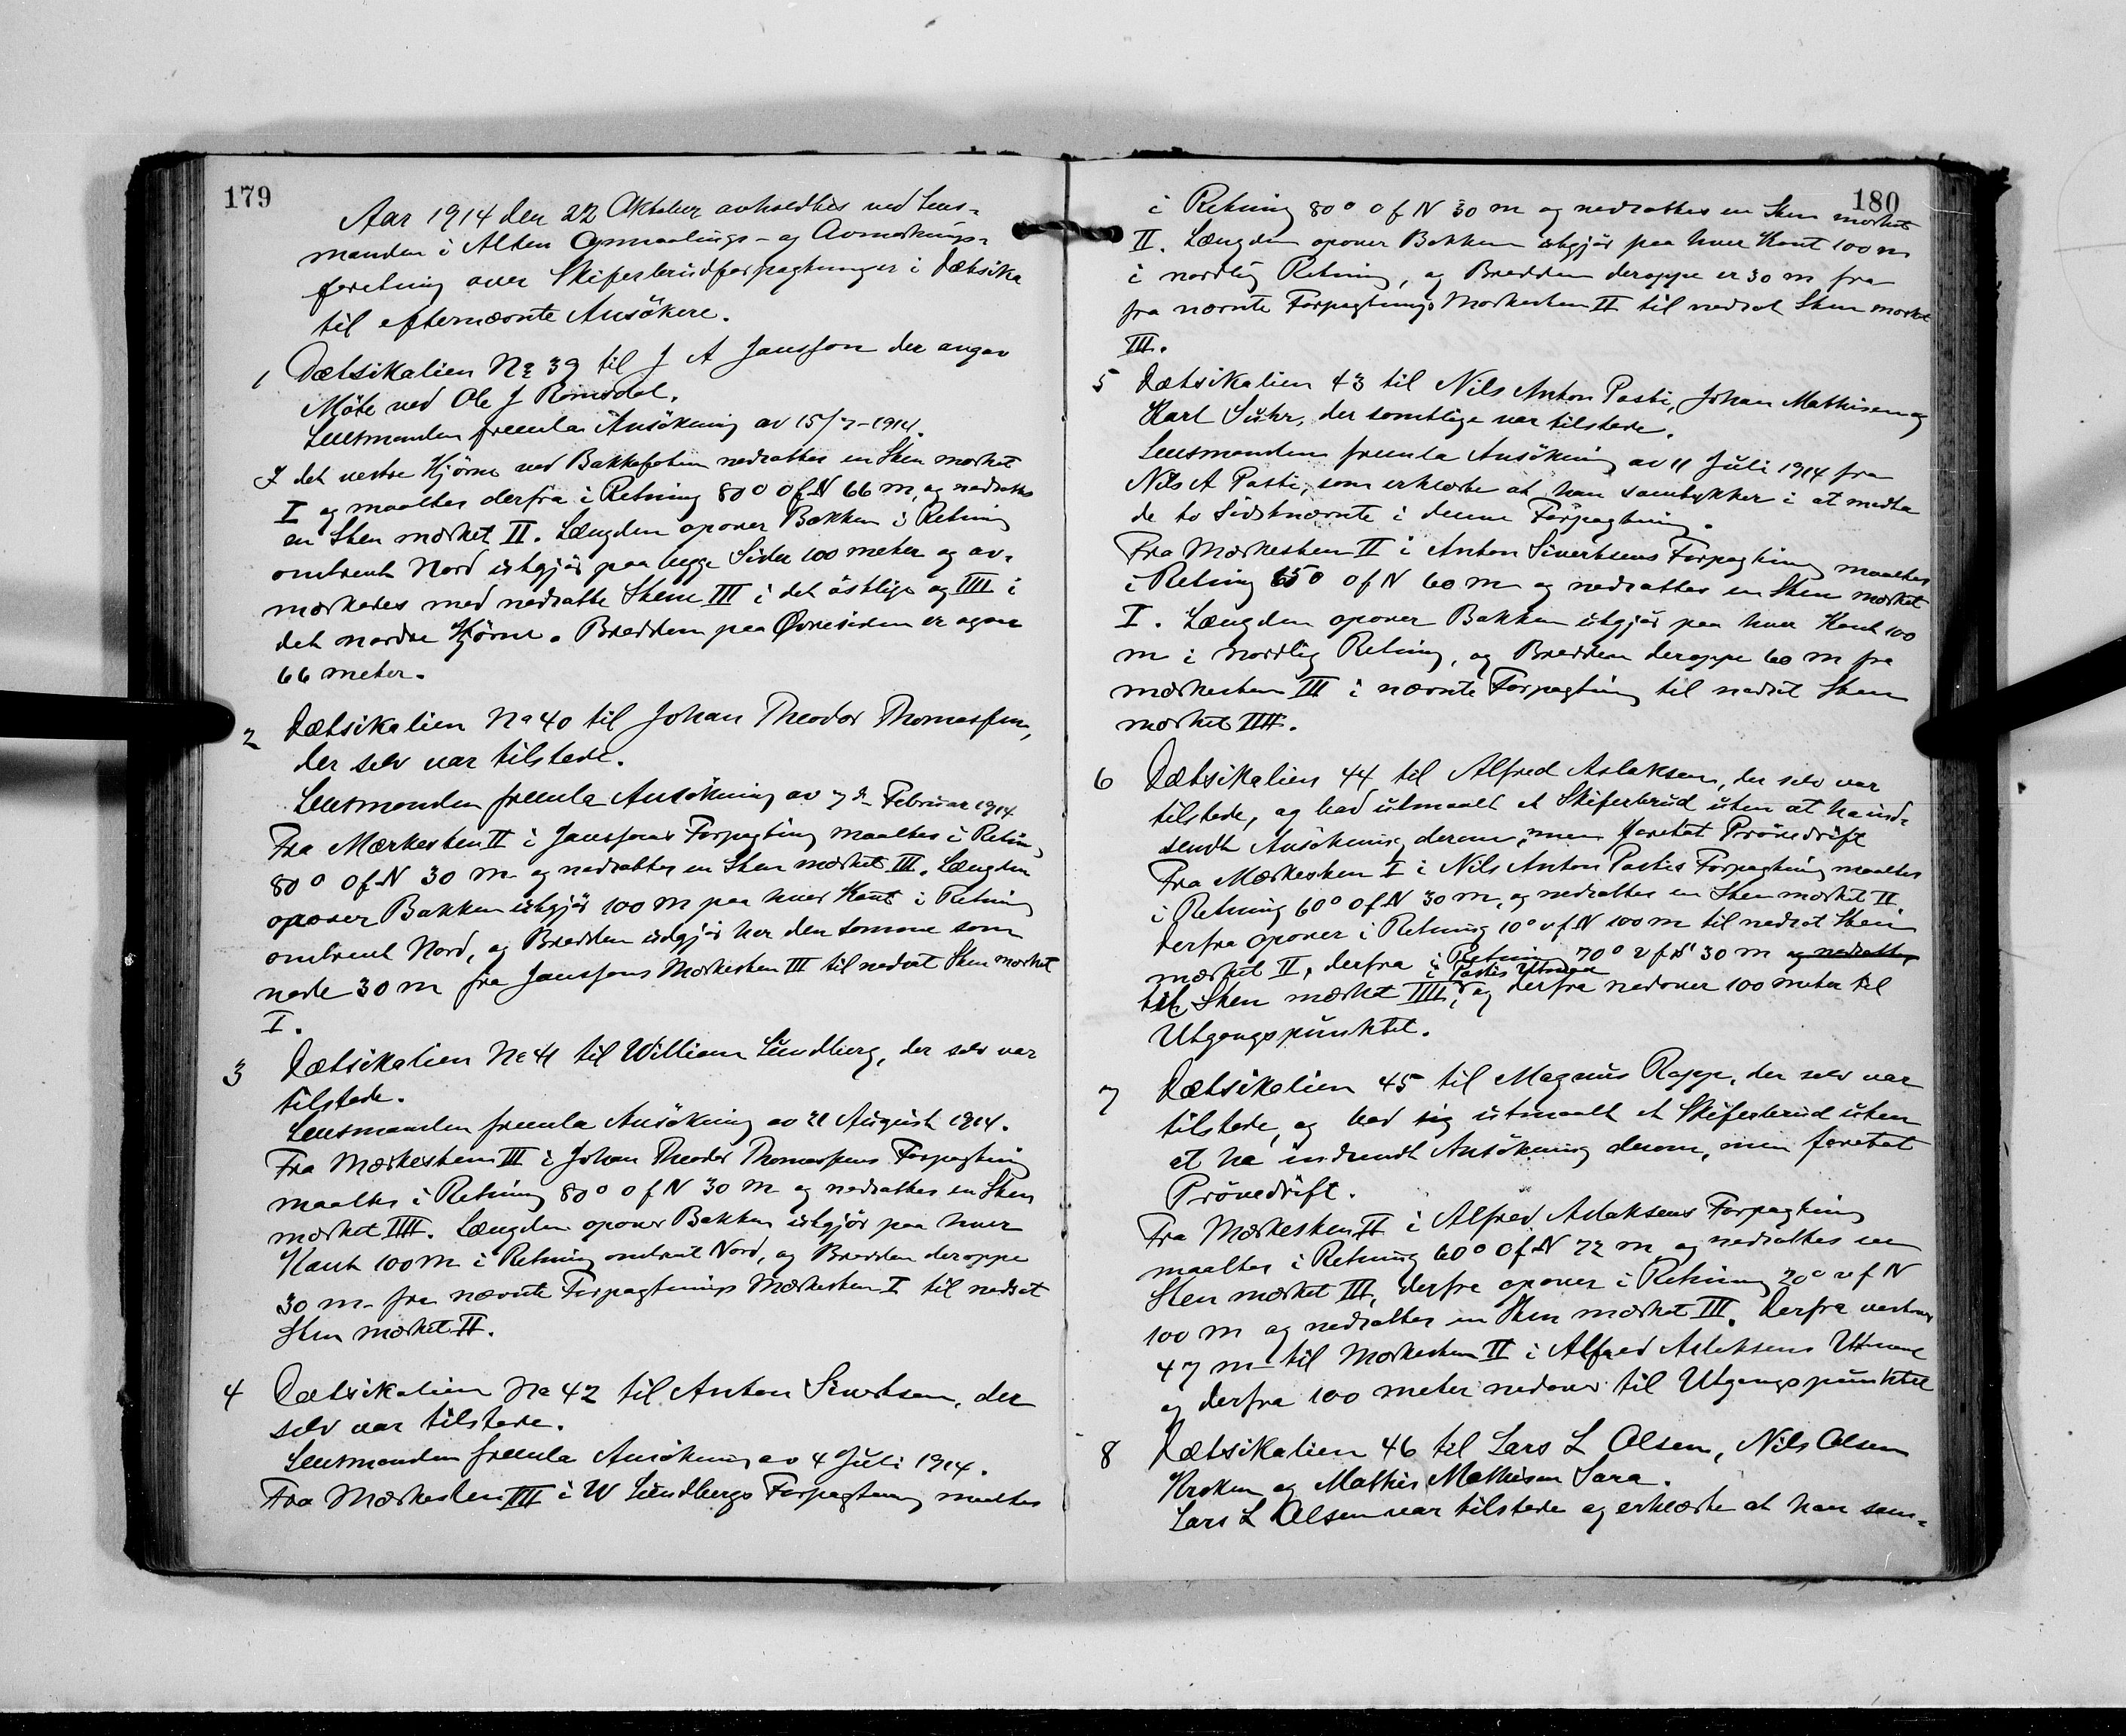 179
Aar 1914 den 22 Oktober avholdtes ved Lens-
manden i Alten Opmaalings- og Avmerknings-
foretning over Skiferbrudforpagtninger i Dætsika
til efternævnte Ansökere.
1 Dætsikalien No 39 til J A Jansson der angav
Möte ved Ole J Romsdal.
Lensmanden fremla Ansökning av 15/7-1914.
I det vestre Hjörne ved Bakkefoten nedsattes en Sten mærket
I og maaltes derfra i Retning 80° O f N 66 m, og nedsattes
en Sten mærket II. Længden opover Bakken i Retning
omtrent Nord utgjör paa begge Sider 100 meter og av-
mærkedes med nedsatte Stene III i det östlige og IIII i
det nordre Hjörne. Bredden paa Övresiden er ogsaa
66 meter.
2 Dætsikalien No 40 til Johan Theodor Thomassen,
der selv var tilstede.
Lensmanden fremla Ansökning av 7de Februar 1914
Fra Mærkesten II i Janssons Forpagtning maaltes i Retning
80° O f N 30 m og nedsattes en Sten mærket III. Længden
opover Bakken utgjör 100 m paa hver Kant i Retning
omtrent Nord, og Bredden utgjör her den samme som
nede 30 m fra Janssons Mærkesten III til nedsat Sten mærket
I.
3 Dætsikalien No 41 til William Lundberg, der selv var
tilstede.
Lensmanden fremla Ansökning av 21 August 1914.
Fra Mærkesten III i Johan Theodor Thomassens Forpagtning
maaltes i Retning 80° O f N 30 m og nedsattes en Sten
mærket IIII. Længden opover Bakken utgjör paa hver
Kant 100 m i Retning omtrent Nord, og Bredden deroppe
30 m fra nævnte Forpagtnings Mærkesten I til nedsat
Sten mærket II.
4 Dætsikalien No 42 til Anton Sivertsen, der
selv var tilstede.
Lensmanden fremla Ansökning av 4 Juli 1914.
Fra Mærkesten IIII i W Lundbergs Forpagtning maaltes
180
i Retning 80° O f N 30 m og nedsattes en Sten mærket
II. Længden opover Bakken utgjör paa hver Kant 100 m
i nordlig Retning, og Bredden deroppe er 30 m fra
fra nævnte Forpagtnings Mærkesten II til nedsat Sten mærket
III.
5 Dætsikalien 43 til Nils Anton Pasti, Johan Mathisen og
Karl Suhr, der samtlige var tilstede.
Lensmanden fremla Ansökning av 11 Juli 1914 fra
Nils A Pasti, som erklærte at han samtykker i at medta
de to Sidstnævnte i denne Forpagtning.
Fra Mærkesten II i Anton Sivertsens Forpagtning maaltes
i Retning 65° O f N 60 m og nedsattes en Sten mærket
I. Længden opover Bakken utgjör paa hver Kant 100
m i nordlig Retning, og Bredden deroppe 60 m fra
mærkesten III i nævnte Forpagtning til nedsat Sten
mærket IIII.
6 Dætsikalien 44 til Alfred Aslaksen, der selv var
tilstede, og bad utmaalt et Skiferbrud uten at ha ind-
sendt Ansökning derom, men foretat Prövedrift
Fra Mærkesten I i Nils Anton Pastis Forpagtning maaltes
i Retning 60° O f N 30 m, og nedsattes en Sten mærket II
derfra opover i Retning 10° v f N 100 m til nedsat Sten
mærket II, derfra i Retning 70° v f N 30 m og nedsattes
i Pastis Utmaal
til Sten mærket IIII, og derfra nedover 100 meter til
Utgangspunktet.
7 Dætsikalien 45 til Magnus Rapp, der selv var
tilstede, og bad sig utmaalt et Skiferbrud uten
at ha indsendt Ansökning derom, men foretat
Prövedrift.
Fra Mærkesten II i Alfred Aslaksens Forpagtning
maaltes i Retning 60° O f N 72 m og nedsattes en
Sten mærket III, derfra opover i Retning 20° v f N
100 m og nedsattes en Sten mærket III. Derfra vestover
47 m til Mærkesten II i Alfred Aslaksens Utmaal
og derfra 100 meter nedover til Utgangspunktet
8 Dætsikalien 46 til Lars L Olsen, Nils Olsen
Kroken og Mathis Mathisen Sara.
Lars L Olsen var tilstede og erklærte at han sam-